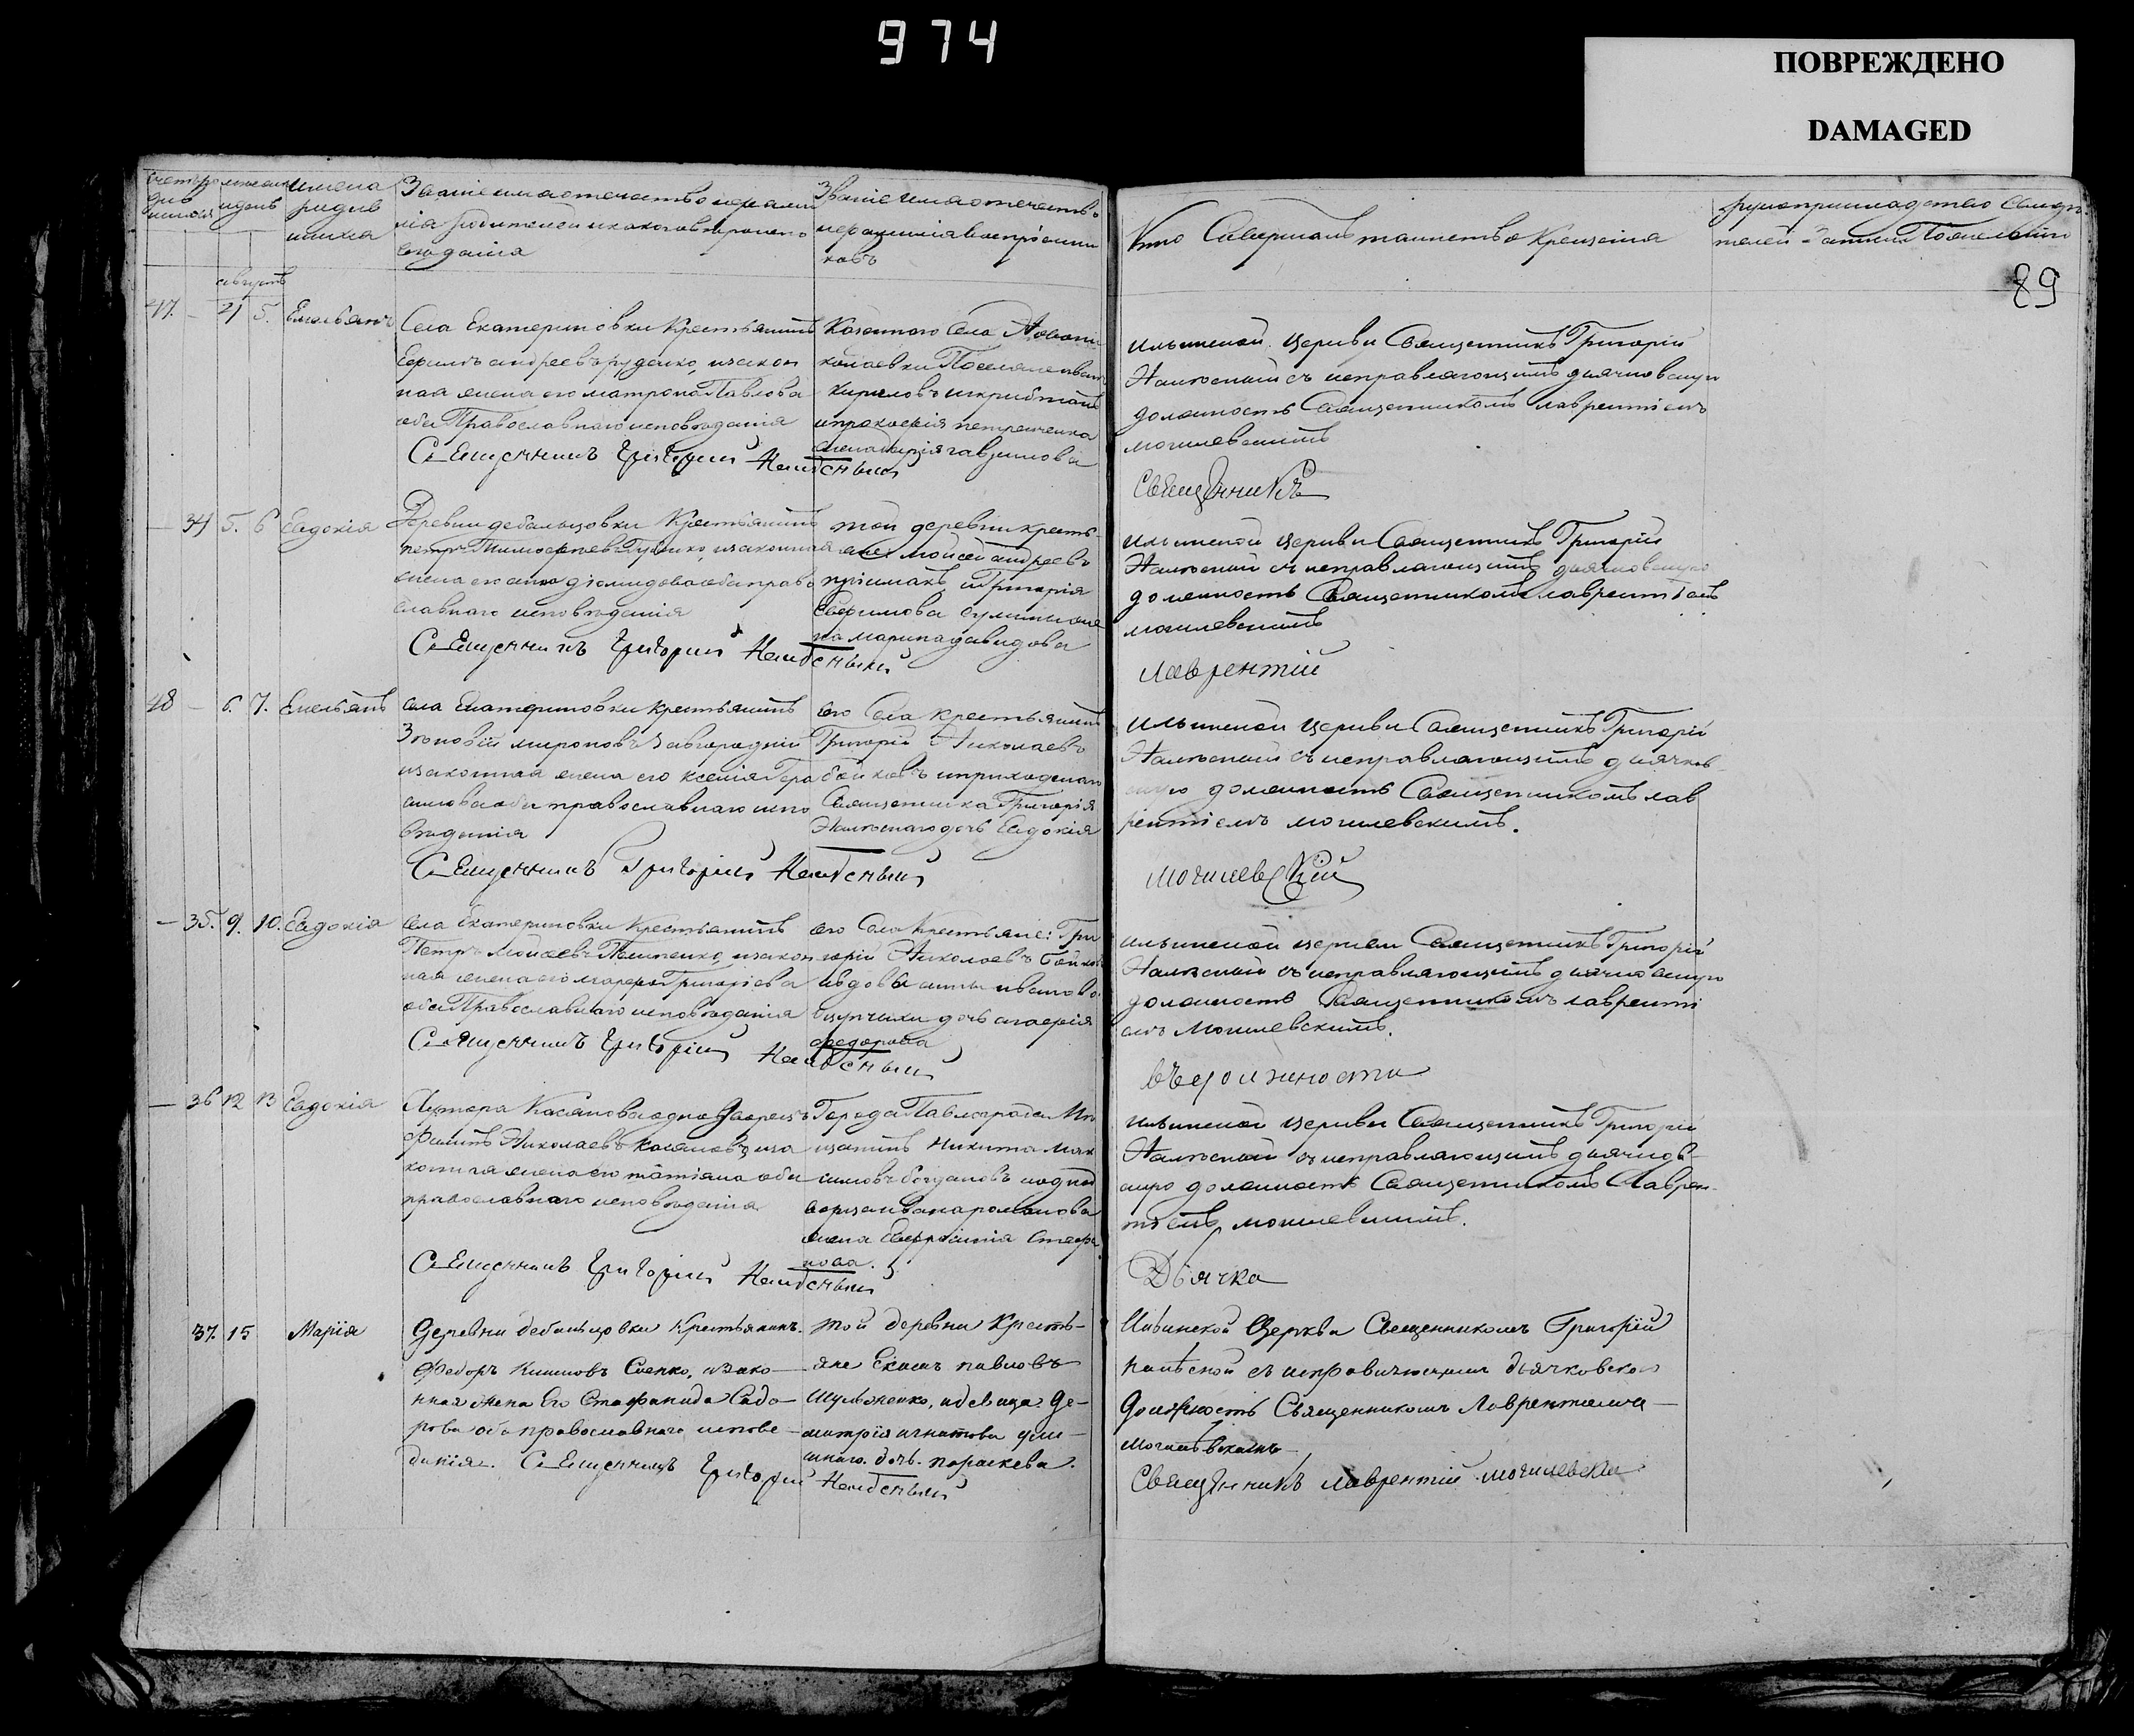 974
ПОВРЕЖДЕНО
DAMAGED
89
счетъ ро мѣсяцъ имена Званіе имя отечество и фамил Званіе имя отечество
див и день родив нія родителей и какого вѣроиспо и фамилія воспріемни
шихся шихся вѣданія ковъ
августъ
47. – 4 5. Емельянъ
Села Екатериновки Крестьянинъ
Ефимъ андреевъ руденко, и закон
ная жена его матрона Павлова
оба Православнаго исповѣданія
Священникъ Григорий Наилѣсный
Казенного Села Новони
колаевки Поселяне иван
Кириловъ и скрибтанъ
и прокофія петренченка
жена дарія
– 34 5. 6 Евдокія
Деревни дебальцовки Крестьянинъ
петръ Тимофеевъ и законная
жена его анна діомидова оба право
славнаго исповѣданія
Священникъ Григорий Наилѣсный
той деревни кресть
яне моисей андреевъ
пріймакъ, и Григорія
Ефимова жена
марина давидова
48 – 6. 7. Емельянъ
села Екатериновки крестьянинъ
Зѣновій мироновъ Завгородній
и законная жена его ксенія Гера
симова оба православнаго испо
вѣданія
Священникъ Григорий Наилѣсный
его Села крестьянинъ
Григорій Николаевъ
бойковъ и приходскаго
Священника Григорія
Наилѣснаго дочь Евдокія
– 35. 9. 10. Евдокія
села Екатериновки Крестьянинъ
Петръ Мойсеевъ и закон
ная жена его марфа Григоріева
оба Православнаго исповѣданія
Священникъ Григорий Наилѣсный
его Села Крестьяне: Гри
горій Николаевъ Бойков
и вдовы анны ивановой
дочь агафія
федорова
– 36 12 13 Евдокія
Хутора Касьянова однодворецъ
Николаевъ Касьяновъ, и за
конная жена его татіана оба
православнаго исповѣданія
Священникъ Григорий Наилѣсный
Города Павлограда Мѣ
щанинъ никита мак
симовъ богдановъ и однод
ворца ивана романова
жена Евфросинія Стефа
нова.
37. 15 Марія
Деревни дебальцовки Крестьянинъ.
Федоръ Климовъ Слепко, и зако–
нная жена Его Стефанида Сидо–
рова оба православнаго испове–
данія. Священникъ Григорий Наилѣсный
той деревни Кресть–
яне Екимъ павловъ
Шульженко, и девица де–
митрія игнатова
дочь. параскева.
Кто Совершалъ таинство Крещенія
рукоприкладство свидѣ
телей записи по желанію
ильинской церкви Священникъ Григорій
Наилѣсный съ исправляющимъ дьячковскую
должность Священникомъ лаврентіемъ
могилевскимъ
Священникъ
ильинской церкви Священникъ Григорій
Наилѣсный съ исправляющимъ дьячковскую
должность Священникомъ лаврентіемъ
могилевскимъ
лаврентій
ильинской церкви Священникъ Григорій
Наилѣсный съ исправляющимъ дьячков
скую должность Священникомъ лав
рентіемъ могилевскимъ.
могилевскій
ильинской церкви Священникъ Григорій
Наилѣсный съ исправляющимъ дьячковскую
должность Священникомъ лаврентi
емъ Могилевскимъ.
въ должности
ильинской церкви Священникъ Григорій
Наилѣсный съ исправляющимъ дьячков–
скую должность Священникомъ Лаврен–
тіемъ могилевскимъ.
Дьячка
Ильинской Церква Священникомъ Григорій
наилѣсной съ исправляющимъ дьячковско
должность Священникомъ Лаврентіемъ
могилевскимъ
Священникъ лаврентій могилевскій